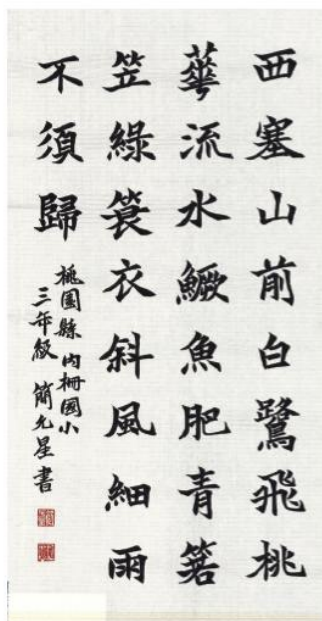 西塞山前白鷺飛桃
蕐流水鱖魚肥青箬
笠綠簑衣斜風細雨
不須歸
桃園縣內柵國小
三年級 簡允星書